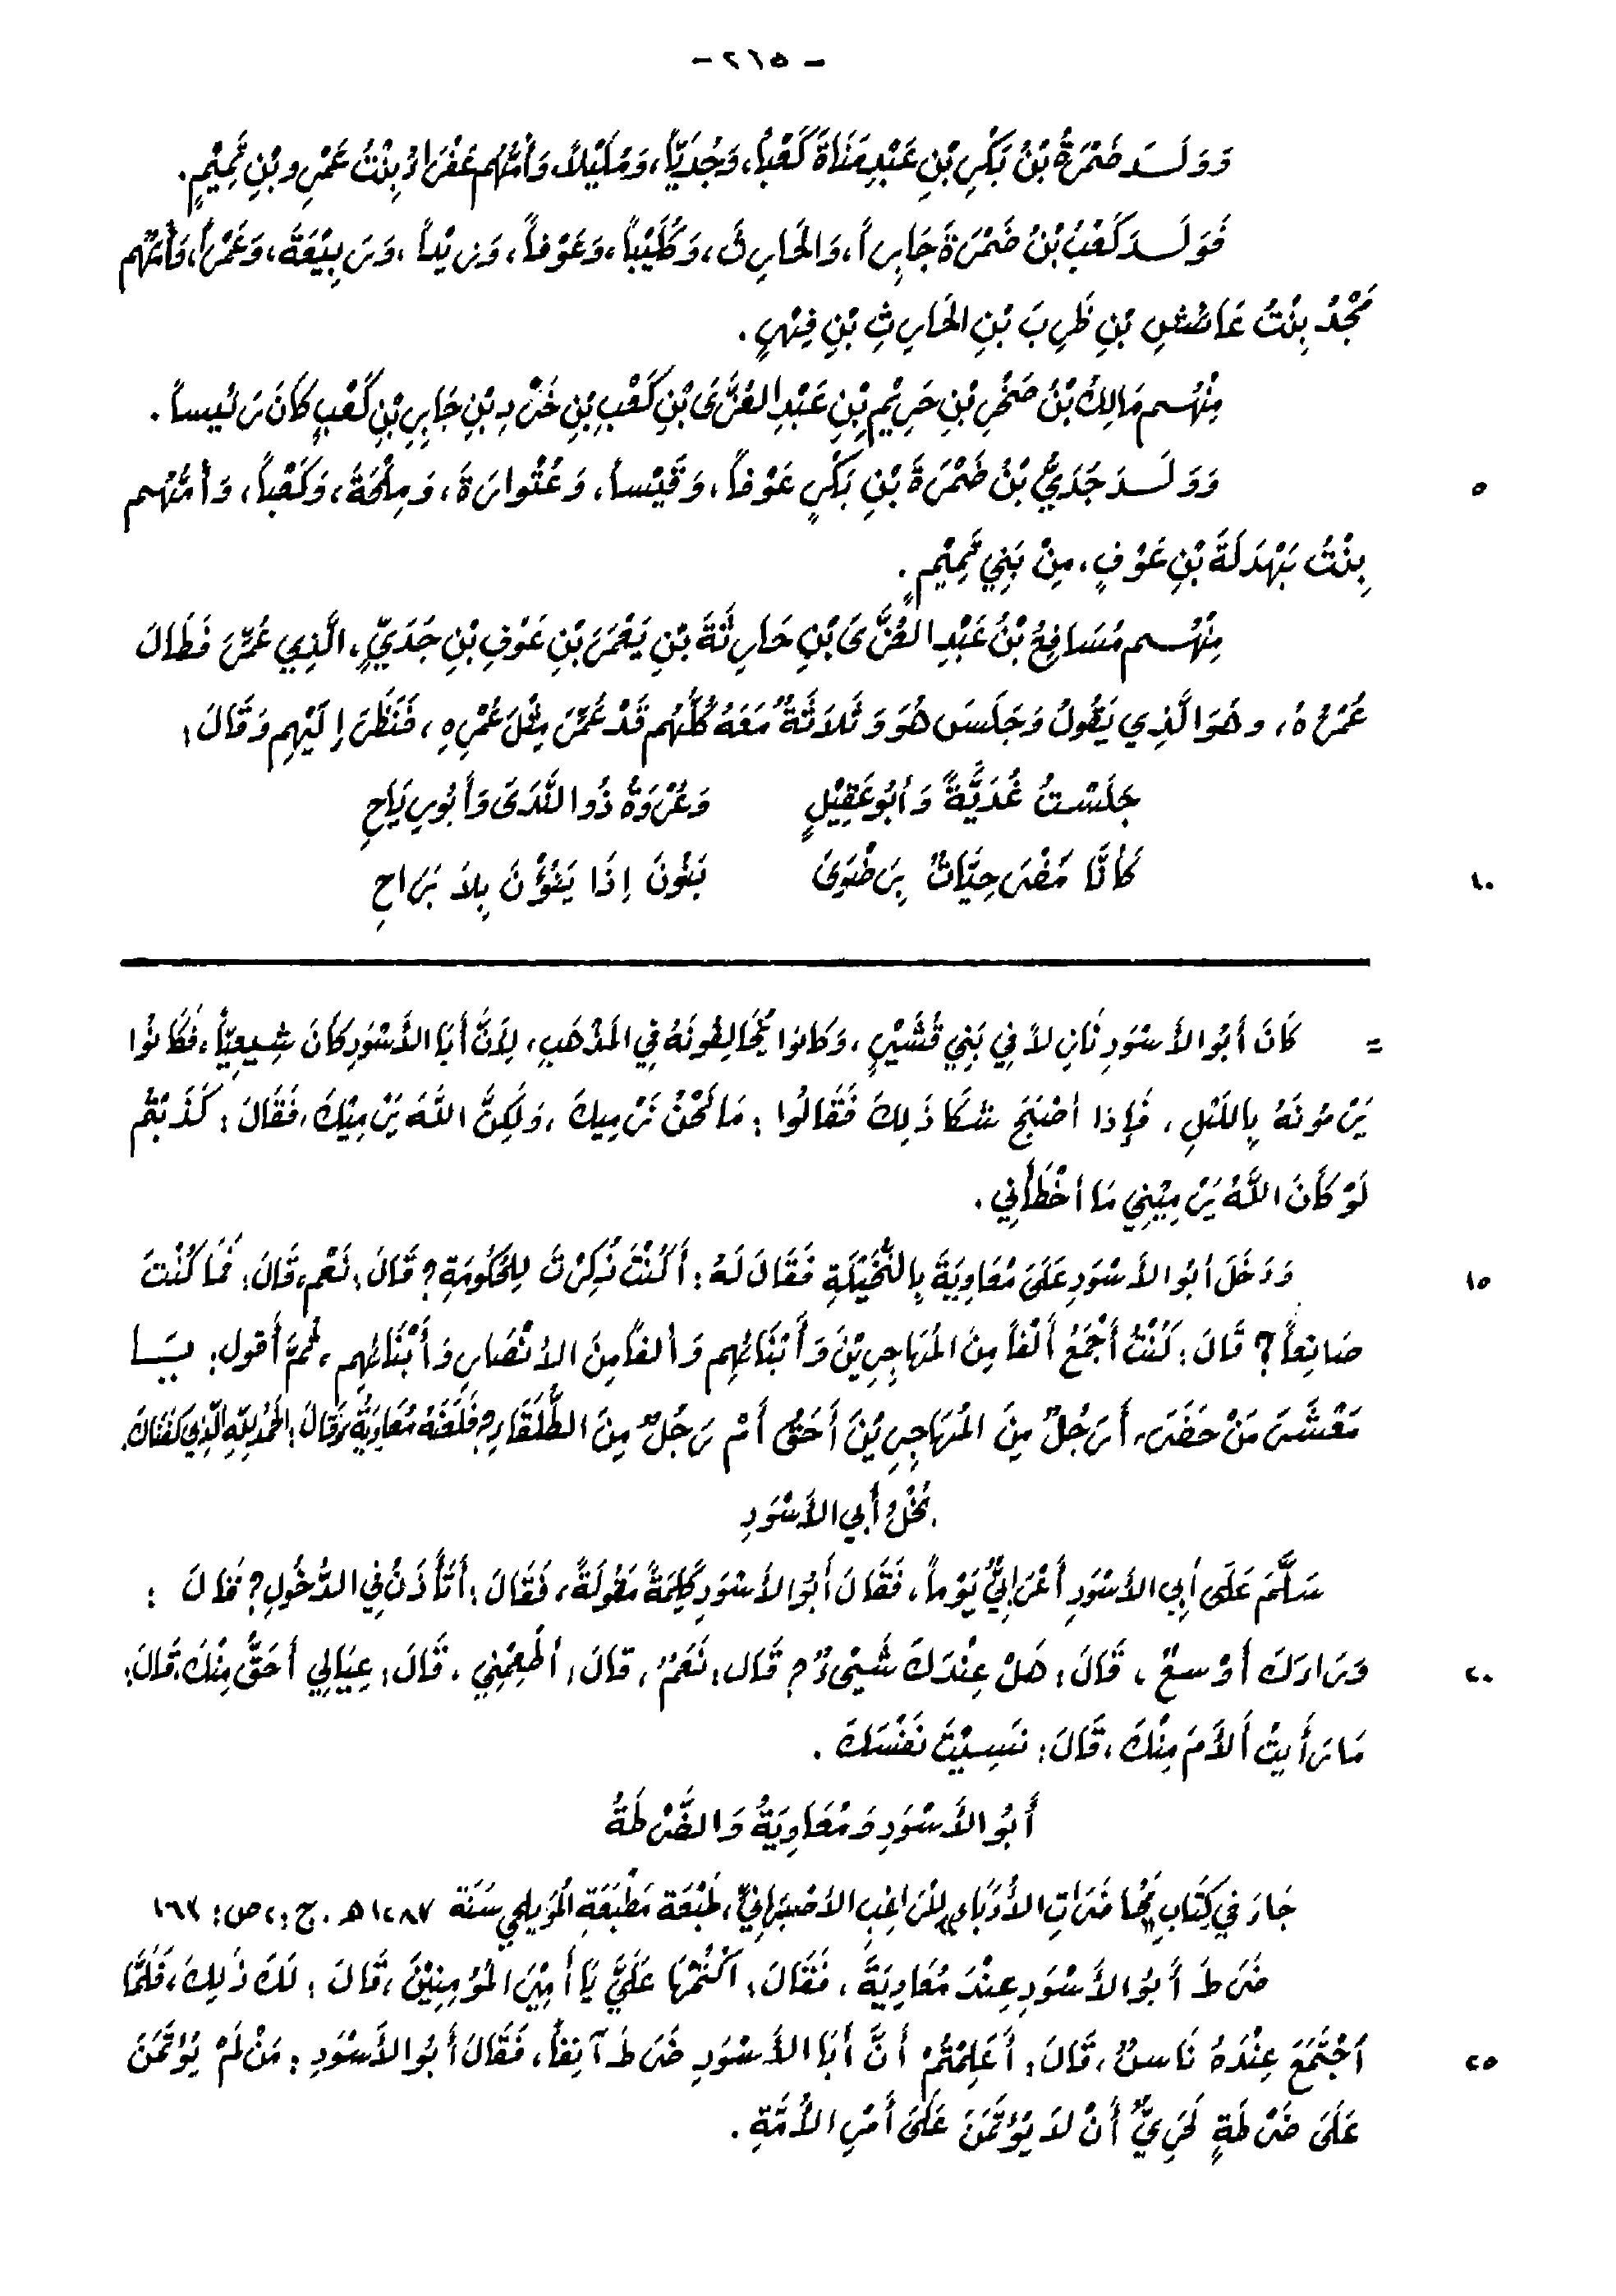 - ٢٦٥ -
وَوَلَـدَ ضَمْرَةُ بْنُ بَكْرِ بْنِ عَبْدِ مَنَاةَ كَعْباً، وَجُدَيّاً، وَمُلَيْلاً، وَأُمُّهُم عَفْرَاءُ بِنْتُ عَمْرِو بْنِ تَمِيْمٍ.
فَوَلَـدَ كَعْبُ بْنُ ضَمْرَةَ جَابِراً، وَالحَارِثَ، وَكُلَيْباً، وَعَوْفاً، وَزَيْداً، وَرَبِيْعَةَ، وَعَمْراً، وَأُمُّهُم
مَجْدُ بِنْتُ عَائِشِ بْنِ ظَرِبَ بْنِ الحَارِثِ بْنِ فِهْرٍ.
مِنْهُـم مَالِكُ بْنُ صَخْرِ بْنِ حَرِيْمِ بْنِ عَبْدِ العُزَّى بْنِ كَعْبِ بْنِ حُرْدِ بْنِ جَابِرِ بْنِ كَعْبٍ كَانَ رَئيساً.
وَوَلَـدَ جُدَيُّ بْنُ ضَمْرَةَ بْنِ بَكْرٍ عَوْفاً، وَقَيْساً، وَعُتْوارَةَ، وَمِلْحَةَ، وَكَعْباً، وَأُمُّهُـم
٥
بِنْتُ بَهْدَلَةَ بْنِ عَوْفٍ، مِنْ بَنِي تَمِيْمٍ.
مِنْهُـم مُسَافِعُ بْنُ عَبْدِ العُزَّى بْنِ حَارِثَةَ بْنِ يَعْمَرَ بْنِ عَوْفِ بْنِ جُدَيٍّ، الَّذِي عُمِّرَ فَطَالَ
عُمْرُهُ، وهُوَ الَّذِي يَقُولُ وَجَلَسَ هُوَ وَثَلاَثَةٌ مَعَهُ كُلُّهُم قَدْ عُمِّرَ مِثْلَ عُمْرِهِ، فَنَظَرَ إِلَيْهِم وَقَالَ:
جَلَسْتُ غُدَيَّةً وَأَبُو عَقِيْلٍ وَعُرْوَةُ ذُو النَّدَى وَأَبُو رِيَاحِ
كَأَنَّا مَضْرَحِيَّاتٌ بِرَضْوَى يَنُوْنَ إِذَا يَنُوْنَ بِلاَ بَرَاحِ
١٠
= كَانَ أَبُو الأَسْوَدِ نَازِلاً فِي بَنِي قُشَيْرٍ، وَكَانوا يُخَالِفُونَهُ فِي المَذْهَبِ، لِأَنَّ أَبَا الأَسْوَدِ كَانَ شِيعِيّاً، فَكَانُوا
يَرْمُونَهُ بِاللَيْلِ، فَإِذا أَصْبَحَ شَكَا ذَلِكَ فَقَالُوا: مَا نَحْنُ نَرْمِيكَ، وَلَكِنَّ اللَّهَ يَرْمِيْكَ، فَقَالَ: كَذَبْتُم
لَوْ كَانَ اللَّهُ يَرْمِيْنِي مَا أَخْطَأَنِي.
وَدَخَلَ أَبُو الأَسْوَدِ عَلَى مُعَاوِيَةَ بِالنُّخَيْلَةِ فَقَالَ لَهُ: أَكُنْتَ ذُكِرْتَ لِلْحُكُومَةِ؟ قَالَ: نَعَم، قَالَ: فَمَا كُنْتَ
١٥
صَانِعاً؟ قَالَ: كُنْتُ أَجْمَعُ أَلْفاً مِنَ المُهَاجِرِيْنَ وَأَبْنَائِهِم وَأَلفاً مِنَ الأَنْصَارِ وَأَبْنَائِهِم، ثُمَّ أَقُول: يَـا
مَعْشَرَ مَنْ حَضَرَ، أَرَجُلٌ مِنَ المُهَاجِرِيْنَ أَحَقُّ أَمْ رَجُلٌ مِنَ الطُّلَقَاءِ؟ فَلَعَنَهُ مُعَاوِيَةُ وَقَالَ: الحَمْدُ لِلَّهِ الَّذِي كَفَنَاكَ.
بُخْلُ أَبِي الأَسْوَدِ
سَلَّمَ عَلَى أَبِي الأَسْوَدِ أَعْرَابِيٌّ يَوْماً، فَقَالَ أَبُو الأَسْوَدِ كَلِمَةً مَقُولَةً، فَقَالَ: أَتَأْذَنُ فِي الدُّخُولِ؟ فقَالَ:
وَرَاءَكَ أَوْسعُ، قَالَ: هَلْ عِنْدَكَ شَيْءٌ؟ قَال: نَعَمْ، قالَ: أَطْعِمْنِي، قَالَ: عِيَالِي أَحَقُّ مِنْكَ، قَالَ:
٢٠
مَا رَأَيتُ أَلأَمَ مِنْكَ، قَالَ: نَسِيْتَ نَفْسَكَ.
أَبُو الأَسْوَدِ وَمُعَاوِيَةُ وَالضَّرْطَةُ
جَاءَ فِي كِتَابِ «مُحَاضَرَاتِ الأُدَبَاءِ» لِلرَّاغِبِ الأَصْبَهَانِيِّ، طَبْعَة مَطْبَعَةِ المُوَيلِحِي سَنَة ١٢٨٧ هـ. ج: ٢ ص: ١٦٣
ضَرَطَ أَبُو الأَسْوَدِ عِنْدَ مُعَاوِيَةَ، فَقَالَ: اكْتُمْهَا عَلَيَّ يَا أَمِيْرَ المُؤمِنِيْنَ، قَالَ: لَكَ ذَلِكَ، فَلَمَّا
اَجْتَمَعَ عِنْدَهُ نَاسٌ، قَالَ: أَعَلِمْتُمْ أَنَّ أَبَا الأَسْوَدِ ضَرَطَ آنِفاً، فَقَالَ أَبُو الأَسْوَدِ: مَنْ لَمْ يُؤتَمَنْ
٢٥
عَلَى ضَرْطَةٍ لَحَرِيٌّ أَنْ لاَ يُؤتَمَنَ عَلَى أَمْرِ الأُمَّةِ.